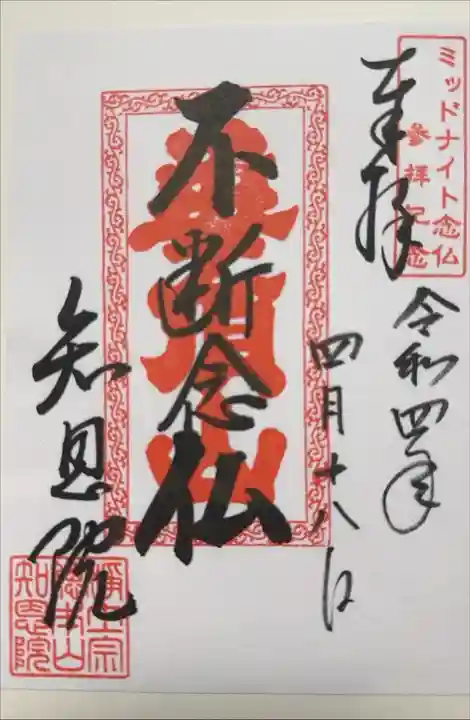 ミッドナイト念仏
参拝記念
奉拝
令和四年
四月十八日
不断念仏
知恩院
浄土宗
総本山
知恩院